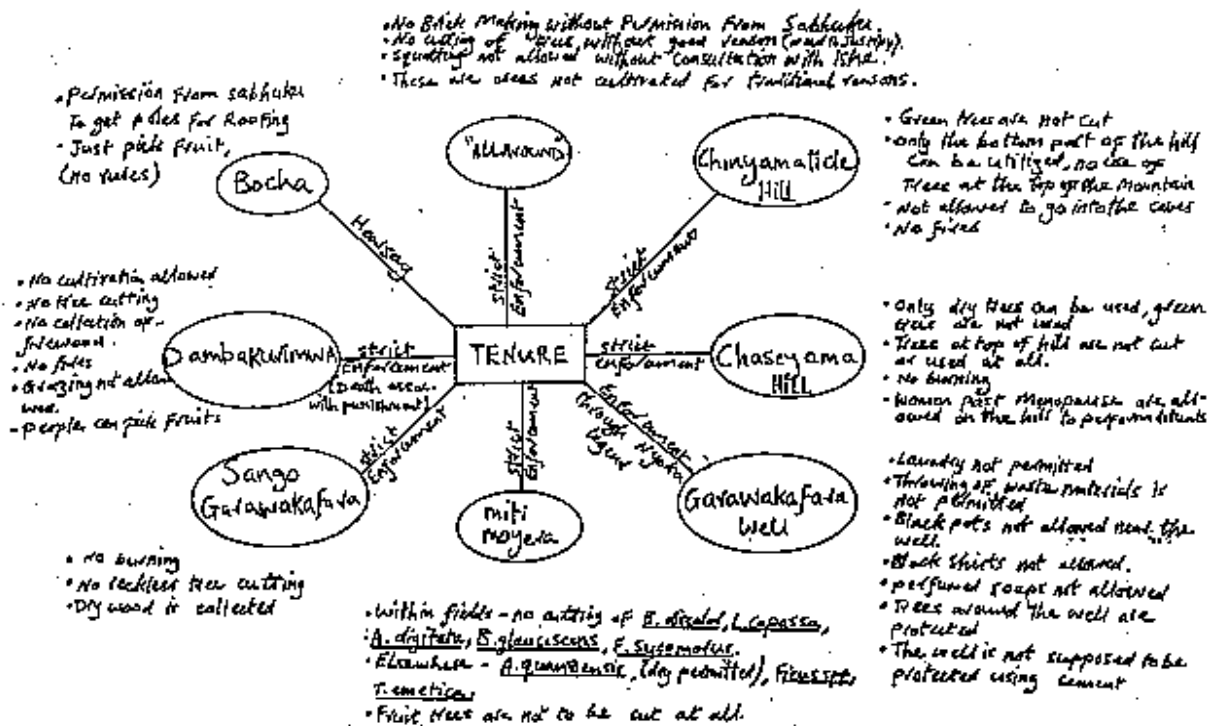 • No Brick Making without Permission From Sabhuku.
• No cutting of trees, without good reason (need to justify).
• Squatting not allowed without consultation with Ishe.
• These are areas not cultivated for traditional reasons.
• Permission from sabhuku
To get poles for Roofing
- Just pick fruit,
(no rules)
Bocha
"ALLAROUND"
Chinyamatide
Hill
• Green trees are not cut
• only the bottom part of the hill
can be utilized, no use of
Trees at the top of the Mountain
• Not allowed to go into the caves
• No fires
strict
Enforcement
strict
Enforcement
• No cultivation allowed
• No tree cutting
• No collection of
firewood.
• No fires
• Grazing not allow
wed.
- People can pick fruits
Dambakurimwa
strict
Enforcement
(Death assoc.
with punishment)
TENURE
strict
enforcement
Chaseyama
Hill
• Only dry trees can be used, green
trees are not used
• Trees at top of hill are not cut
or used at all.
• No burning
- Women past Menopause are all-
owed on the hill to perform
Sango
Garawakafara
strict
Enforcement
strict
Enforcement
miti
moyera
Enforcement
through Nyoka
legend
Garawakafara
Well
• No burning
• No reckless tree cutting
• Dry wood is collected
• Laundry not permitted
• Throwing of waste materials is
not permitted
• Black pots not allowed near the
well.
• Black shirts not allowed.
• perfumed soaps not allowed
• Trees around the well are
protected
• The well is not supposed to be
protected using cement
• Within fields - no cutting of B. discolor, L. capassa,
A. digitata, B. glaucescens, F. sycomorus.
• Elsewhere - A. quanzensis, (dry permitted), Ficus spp,
T. emetica,
• Fruit trees are not to be cut at all.